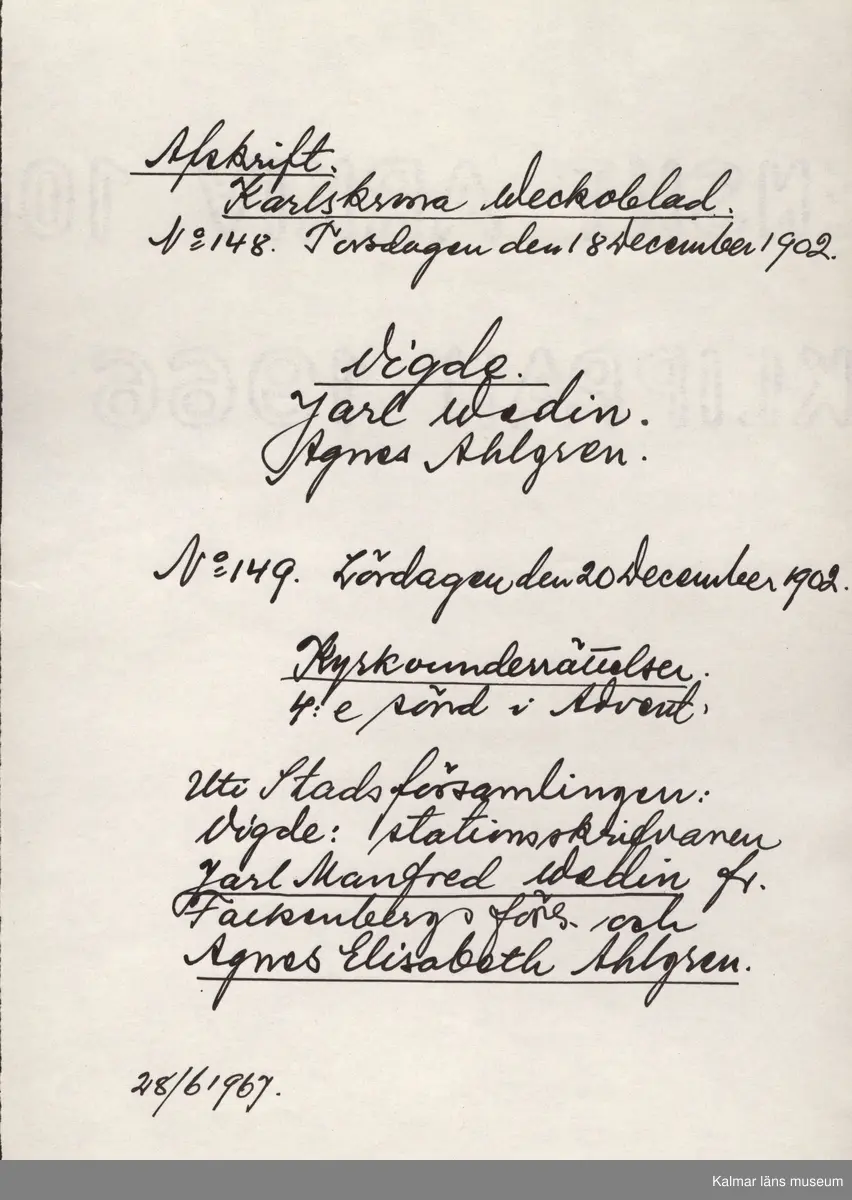 Afskrift.
Karlskrona Weckoblad.
No 148. Torsdagen den 18 December 1902.
Vigde.
Jarl Wedin.
Agnes Ahlgren.
No 149. Lördagen den 20 December 1902.
Kyrkounderrättelser.
4:e sönd i Advent.
Uti Stadsförsamlingen:
Vigde: stationsskrifvaren
Jarl Manfred Wedin fr.
Falkenbergs förs. och
Agnes Elisabeth Ahlgren.
28/6 1967.
Kalmar läns museum